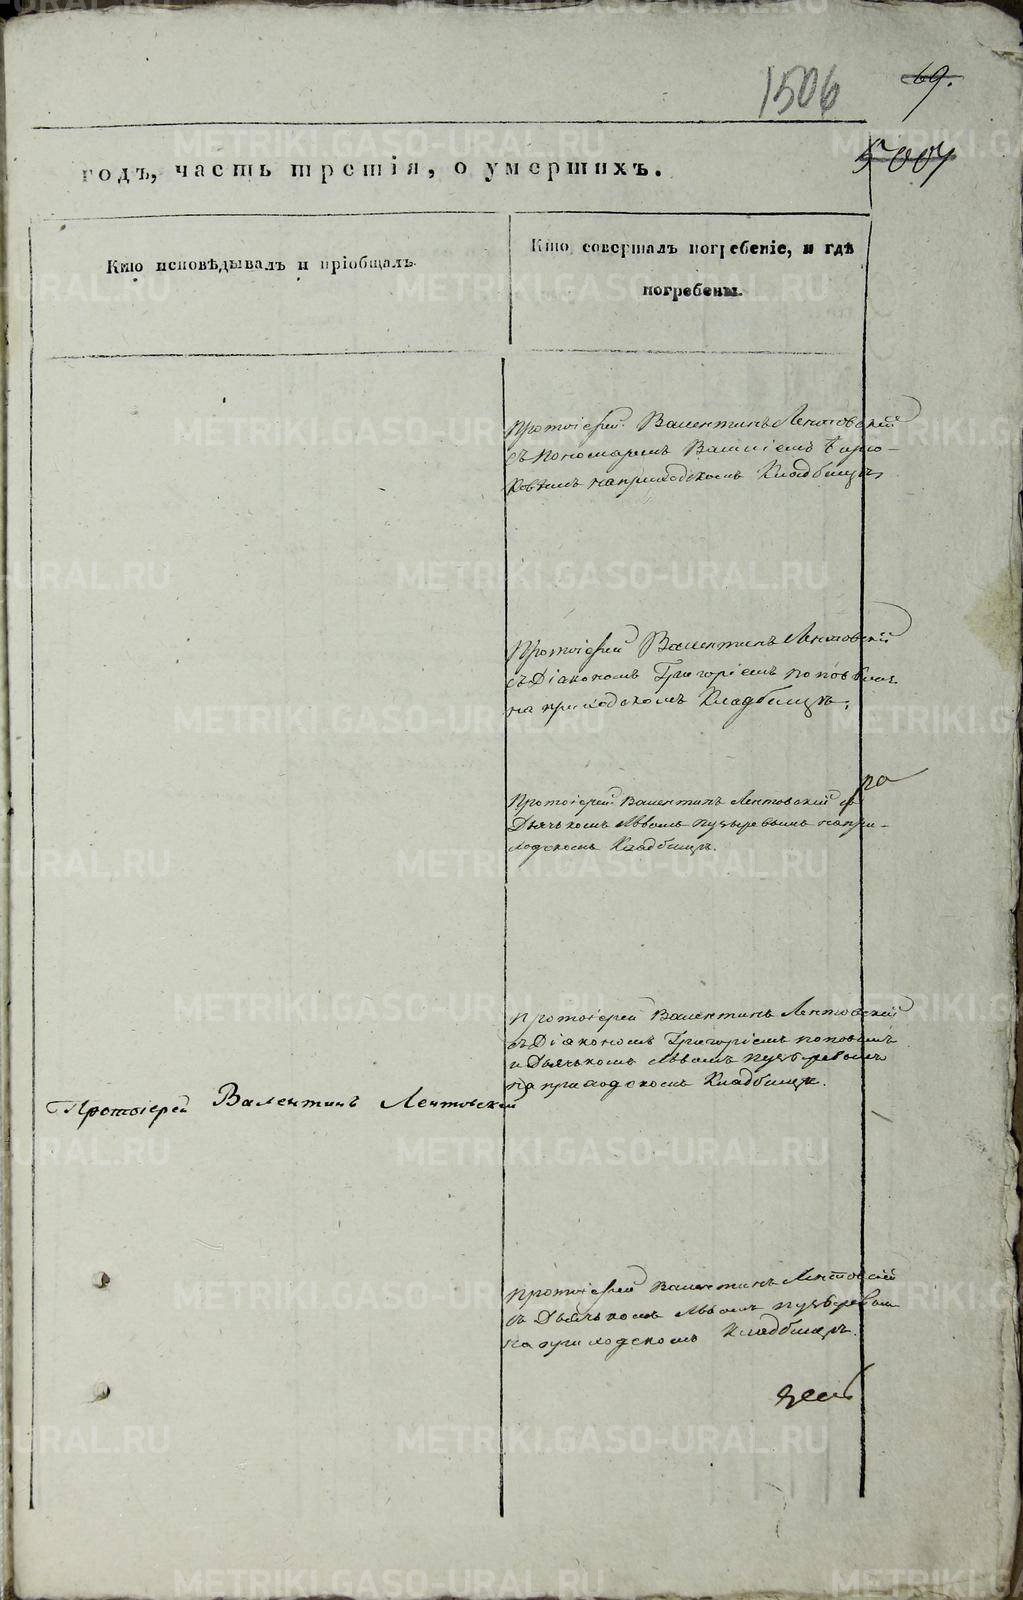 1506
69.
5007
годъ, часть третія, о умершихъ.
Кто исповѣдывалъ и пріобщалъ.
Кто совершалъ погребеніе, и гдѣ
погребены.
Протоіерей Валентинъ Лентовскій
съ Пономаремъ
на приходскомъ Кладбищѣ,
Протоіерей Валентинъ Лентовскій
съ Діакономъ Григоріемъ Поповымъ
на приходскомъ Кладбищѣ.
Протоіерей Валентинъ Лентовскій съ
Дьячькомъ Львомъ Пузыревымъ на при-
ходскомъ Кладбищѣ.
Протоіерей Валентинъ Лентовскій
съ Діакономъ Григоріемъ Поповымъ
и Дьячькомъ Львомъ Пузыревымъ
на приходскомъ Кладбищѣ.
Протоіерей Валентинъ Лентовскій
Протоіерей Валентинъ Лентовскій
съ Дьячькомъ Львомъ Пузыревымъ
на приходскомъ Кладбищѣ.
METRIKI.GASO-URAL.RU